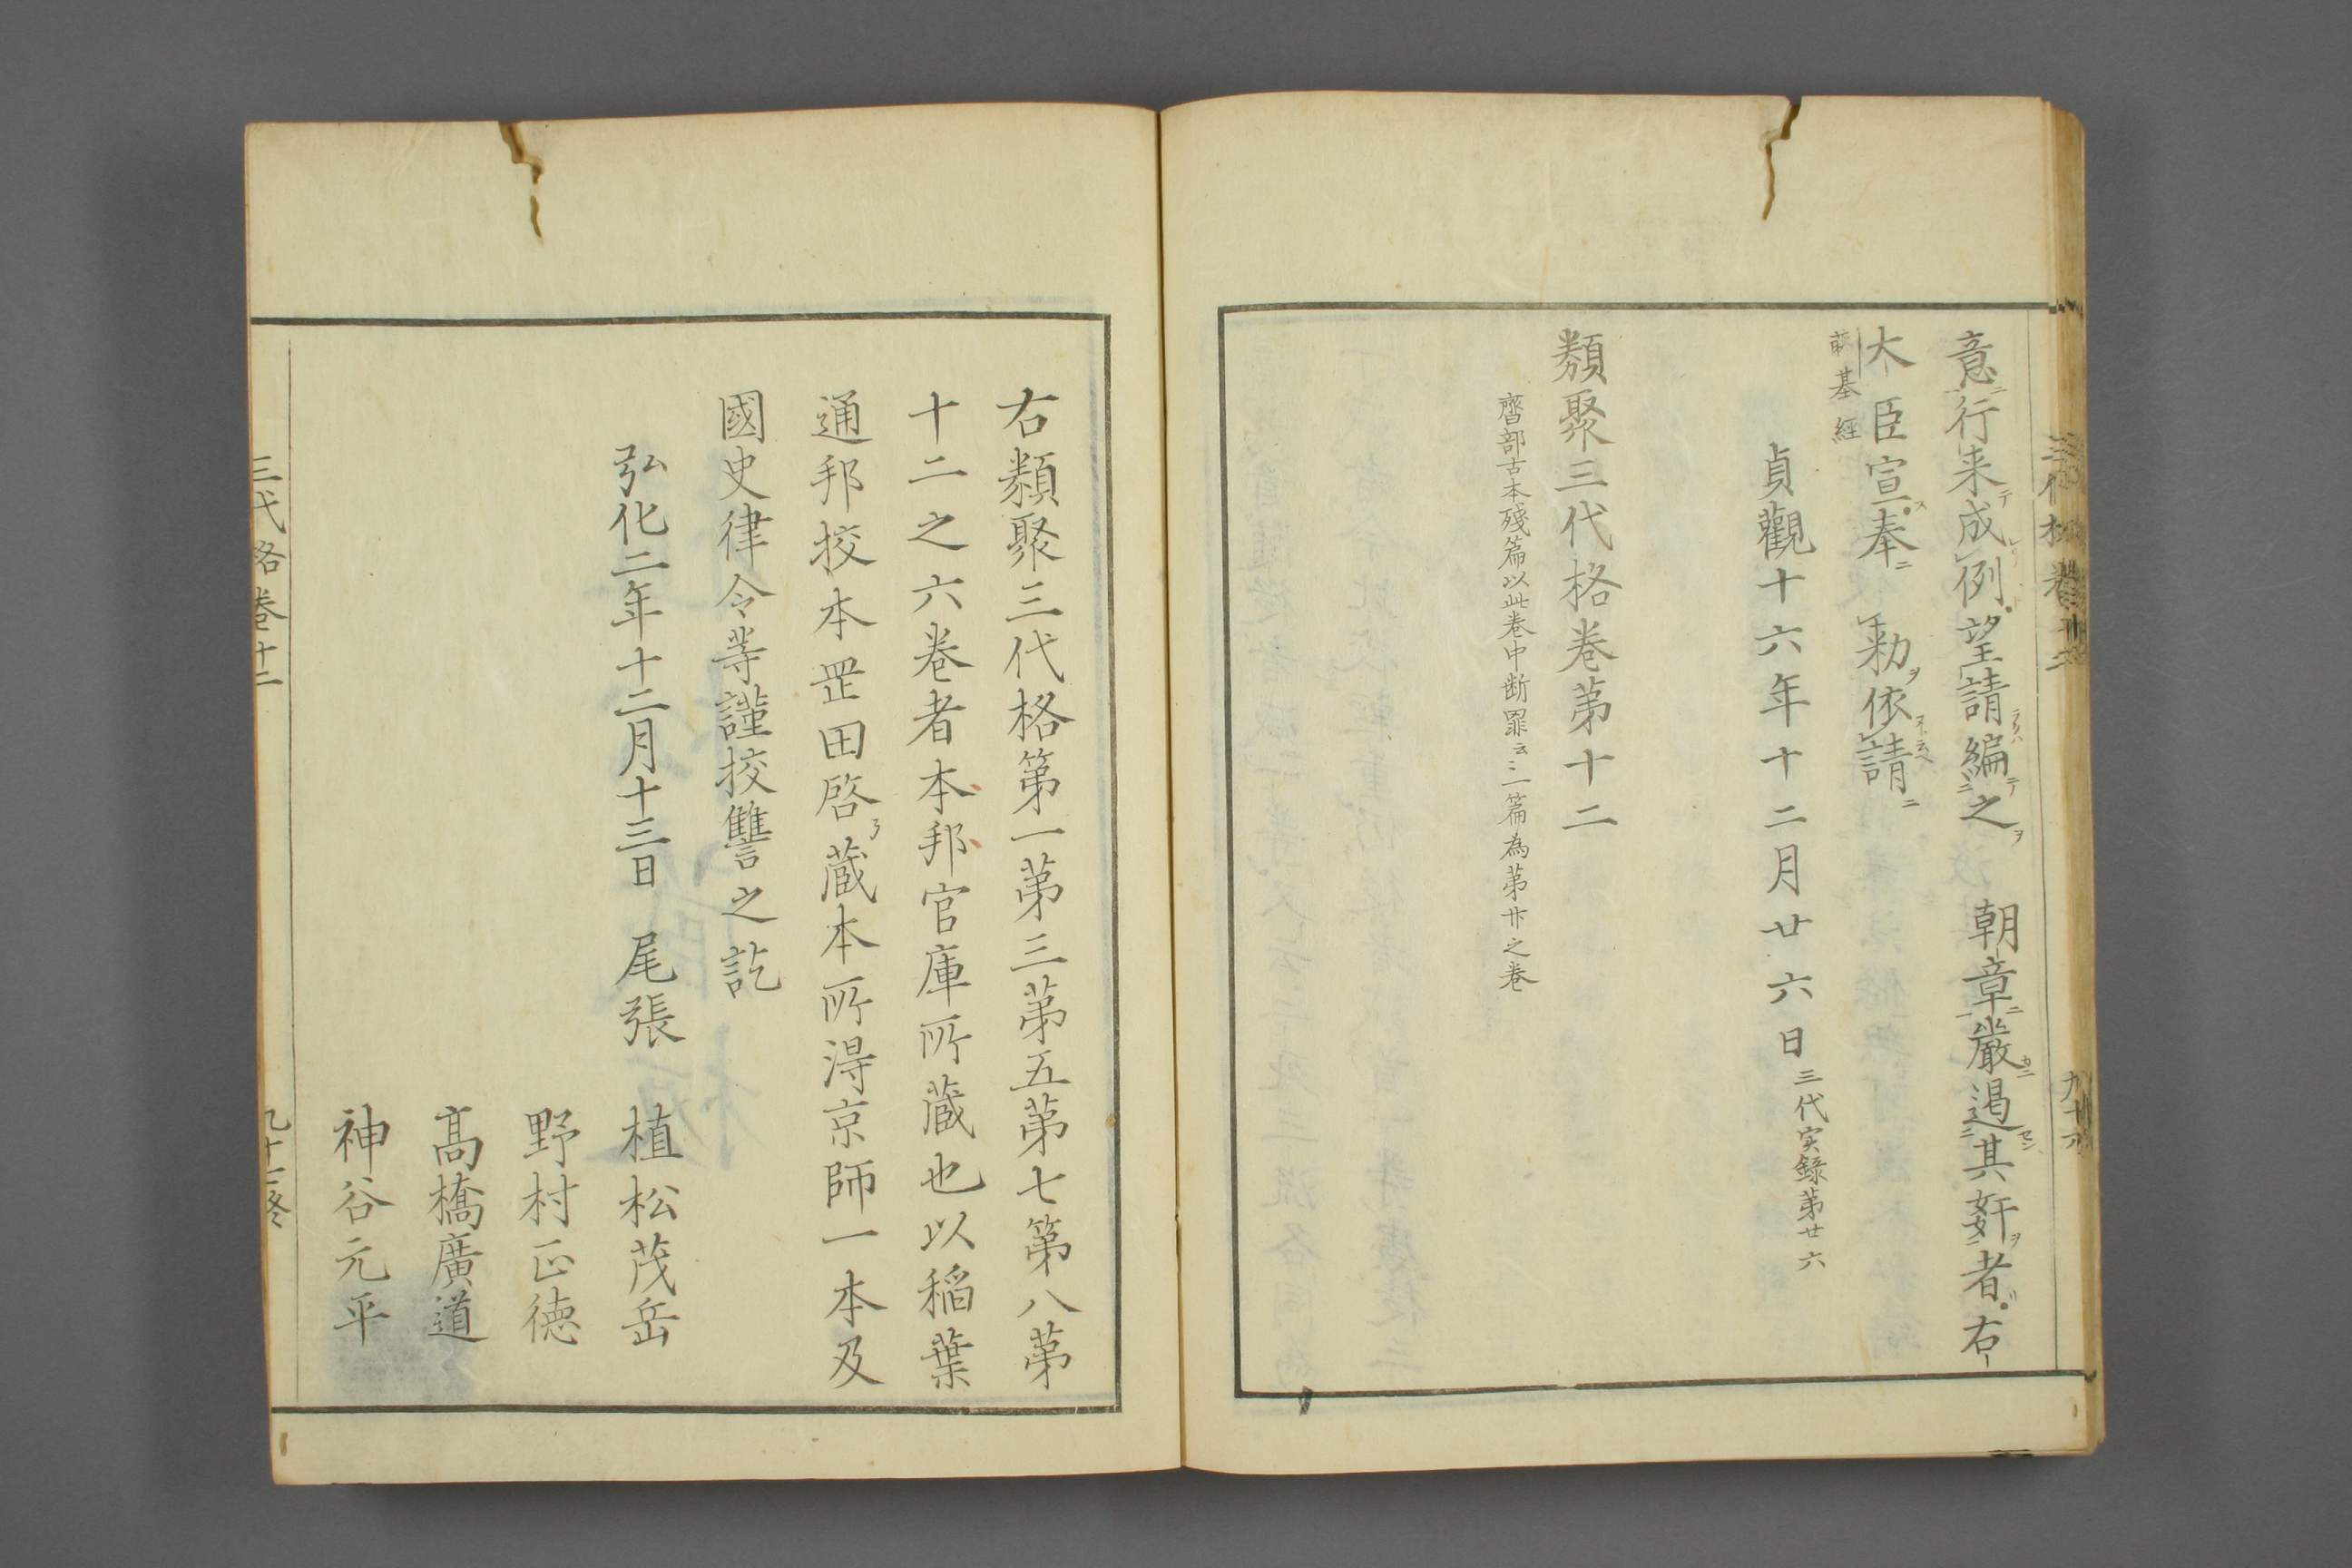 意行来成例望請編之　朝章嚴遏其姧者右
大臣宣奉　勅依請
基經
貞觀十六年十二月廿六日三代実録第廿六
類聚三代格巻第十二
齋部古本残篇以此巻中断罪云〻一篇為第廾之巻
右類聚三代格第一第三第五第七第八第
十二之六巻者本邦官庫所蔵也以稲葉
通邦挍本罡田啓蔵本所淂京師一本及
國史律令等謹挍讐之訖
弘化二年十二月十三日　尾張　植松茂岳
野村正徳
髙橋廣道
神谷元平
三代格巻十二